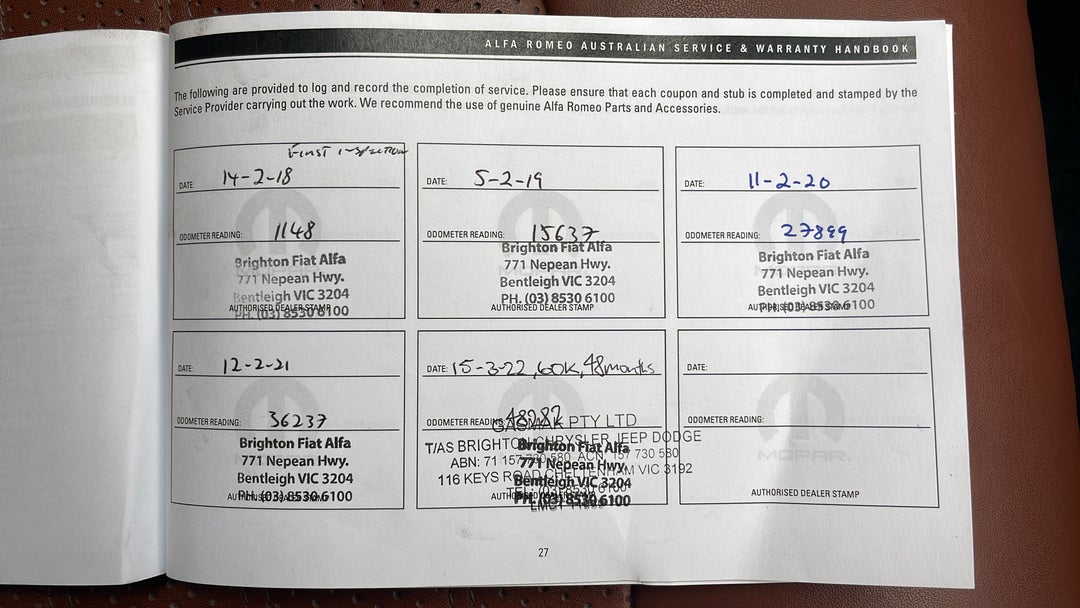 ALFA ROMEO AUSTRALIAN SERVICE & WARRANTY HANDBOOK
The following are provided to log and record the completion of service. Please ensure that each coupon and stub is completed and stamped by the
Service Provider carrying out the work. We recommend the use of genuine Alfa Romeo Parts and Accessories.
First inspection
DATE: 14-2-18
ODOMETER READING: 1148
Brighton Fiat Alfa
771 Nepean Hwy.
Bentleigh VIC 3204
AUTHORISED DEALER STAMP
PH. (03) 8530 6100
DATE: 5-2-19
ODOMETER READING: 15637
Brighton Fiat Alfa
771 Nepean Hwy.
Bentleigh VIC 3204
PH. (03) 8530 6100
AUTHORISED DEALER STAMP
DATE: 11-2-20
ODOMETER READING: 27899
Brighton Fiat Alfa
771 Nepean Hwy.
Bentleigh VIC 3204
PH. (03) 8530 6100
AUTHORISED DEALER STAMP
DATE: 12-2-21
ODOMETER READING: 36237
Brighton Fiat Alfa
771 Nepean Hwy.
Bentleigh VIC 3204
PH. (03) 8530 6100
AUTHORISED DEALER STAMP
DATE: 15-3-22, 60K, 48months
ODOMETER READING: 48282
PTY LTD
T/AS BRIGHTON CHRYSLER JEEP DODGE
ABN: 71 157 730 580 ACN: 157 730 580
116 KEYS ROAD CHELTENHAM VIC 3192
Brighton Fiat Alfa
771 Nepean Hwy.
Bentleigh VIC 3204
PH. (03) 8530 6100
DATE:
ODOMETER READING:
MOPAR
AUTHORISED DEALER STAMP
27